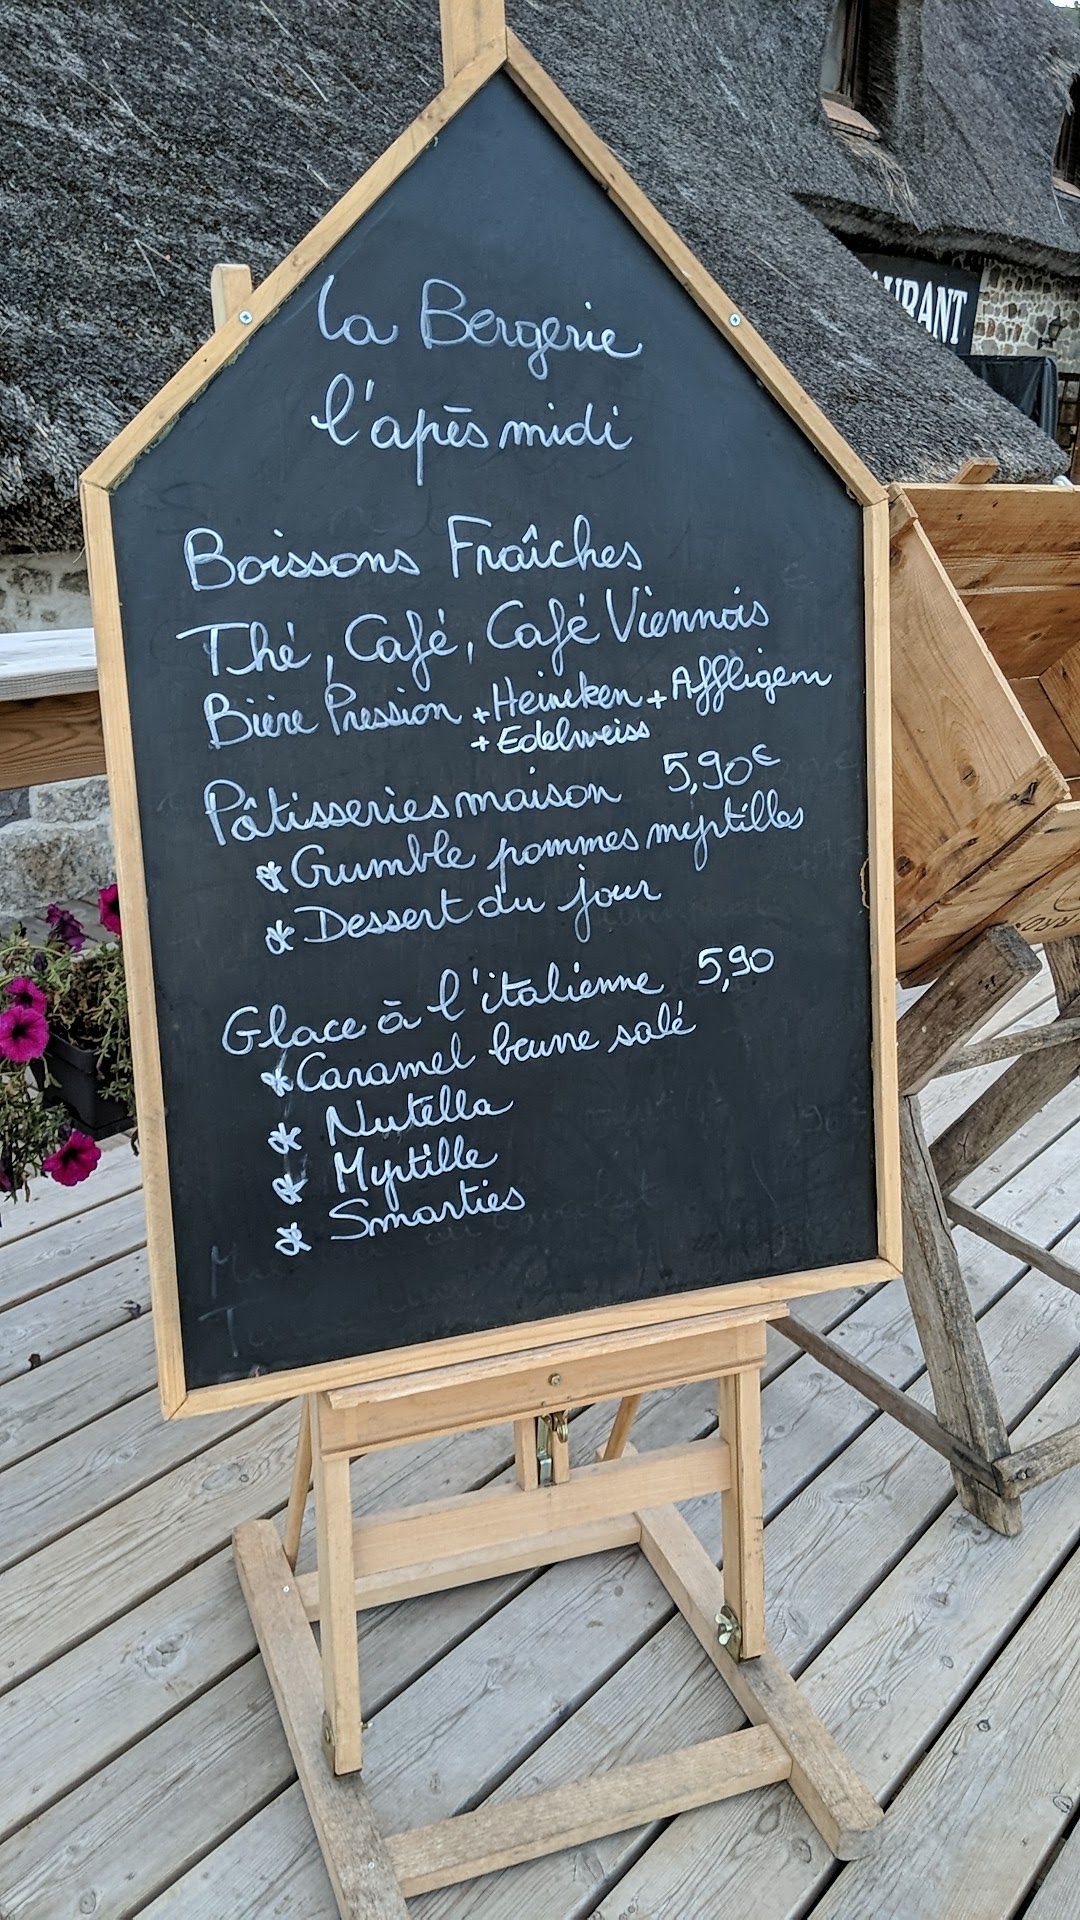 La Bergerie
l'apès midi
Boissons Fraîches
Thé, Café, Café Viennois
Bière Pression + Heineken + Affligem
+ Edelweiss
Pâtisseries maison 5,90€
* Crumble pommes myrtilles
* Dessert du jour
Glace à l'italienne 5,90
* Caramel beurre salé
* Nutella
* Myrtille
* Smarties
AURANT